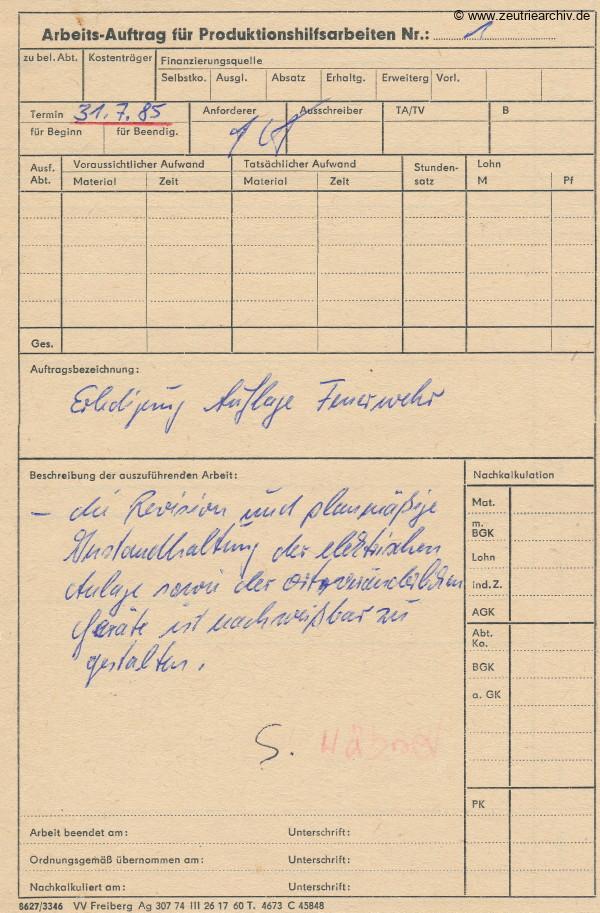 © www.zeutriearchiv.de
Arbeits-Auftrag für Produktionshilfsarbeiten Nr.: 1
zu bel. Abt. Kostenträger Finanzierungsquelle
Selbstko. Ausgl. Absatz Erhaltg. Erweiterg Vorl.
Termin 31.7.85 Anforderer Ausschreiber TA/TV B
für Beginn für Beendig.
Ausf. Abt. Voraussichtlicher Aufwand Tatsächlicher Aufwand Stundensatz Lohn
Material Zeit Material Zeit M Pf
Ges.
Auftragsbezeichnung:
Erledigung Auflage Feuerwehr
Beschreibung der auszuführenden Arbeit: Nachkalkulation
– die Revision und planmäßige
Instandhaltung der elektrischen
Anlage sowie der ortsveränderlichen
Geräte ist nachweißbar zu
gestalten.
Mat.
m. BGK
Lohn
ind. Z.
AGK
Abt. Ko.
BGK
a. GK
S.
PK
Arbeit beendet am: Unterschrift:
Ordnungsgemäß übernommen am: Unterschrift:
Nachkalkuliert am: Unterschrift:
8627/3346 VV Freiberg Ag 307 74 III 26 17 60 T. 4673 C 45848